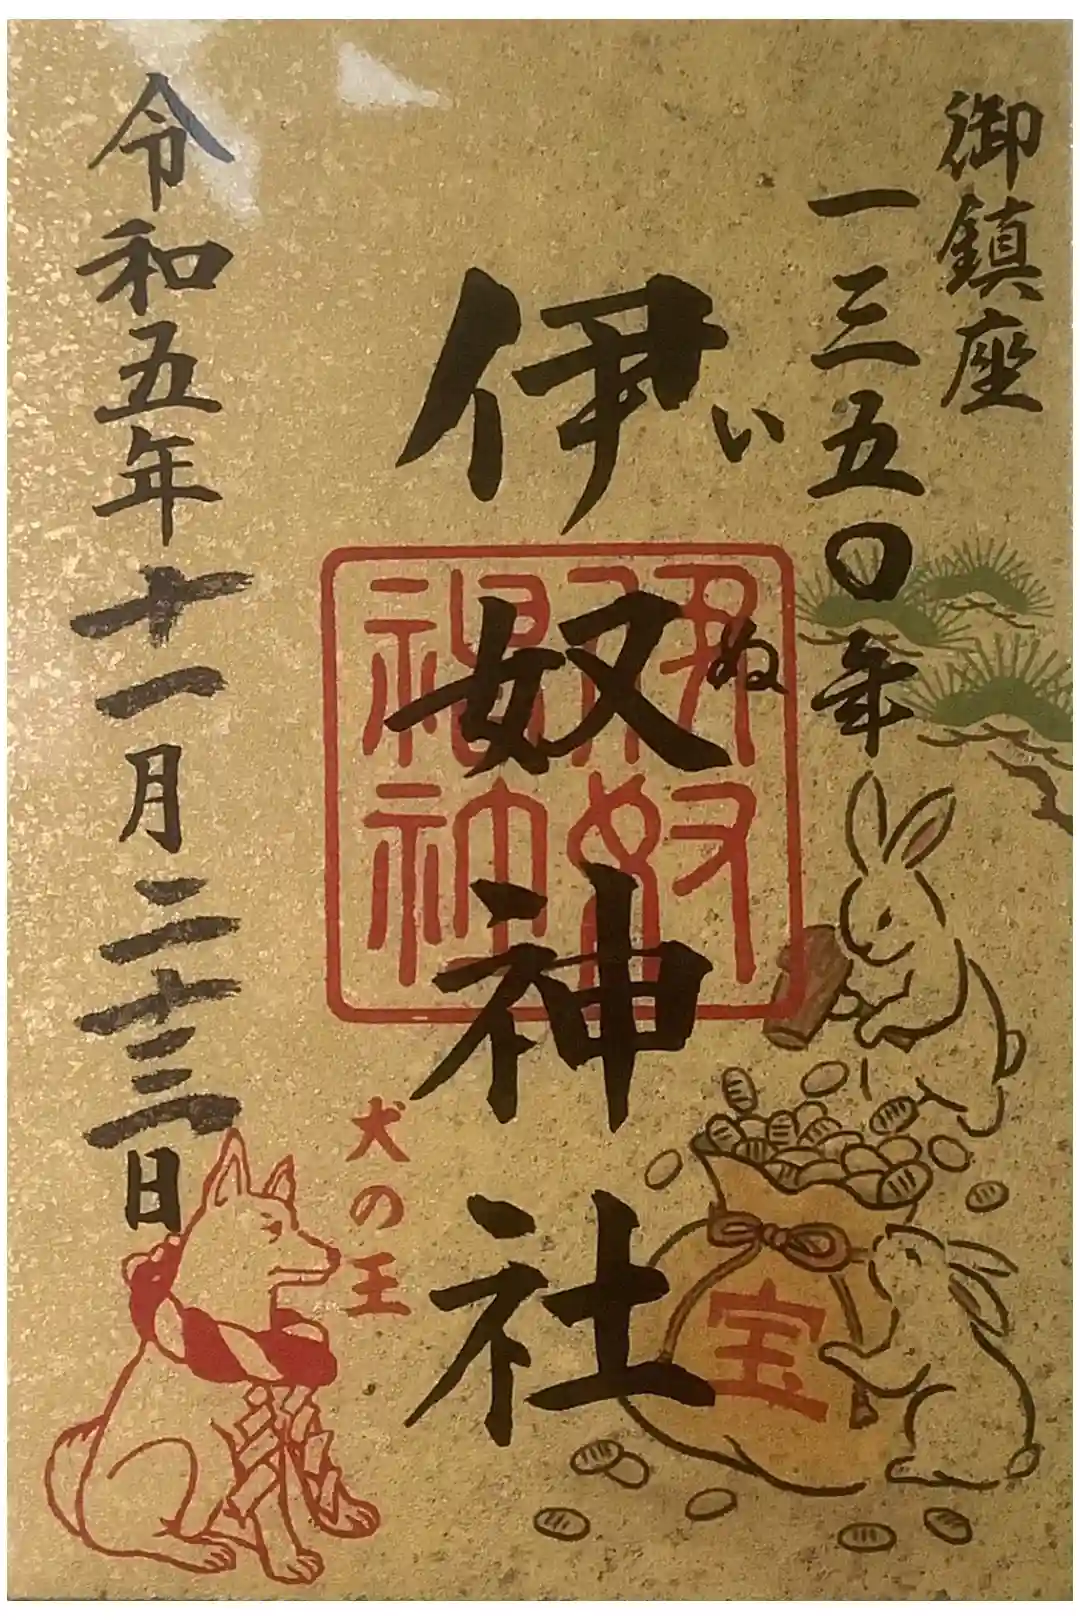 御鎮座
一三五〇年
伊奴神社
いぬ
伊奴
神社
宝
犬の王
令和五年十一月二十三日